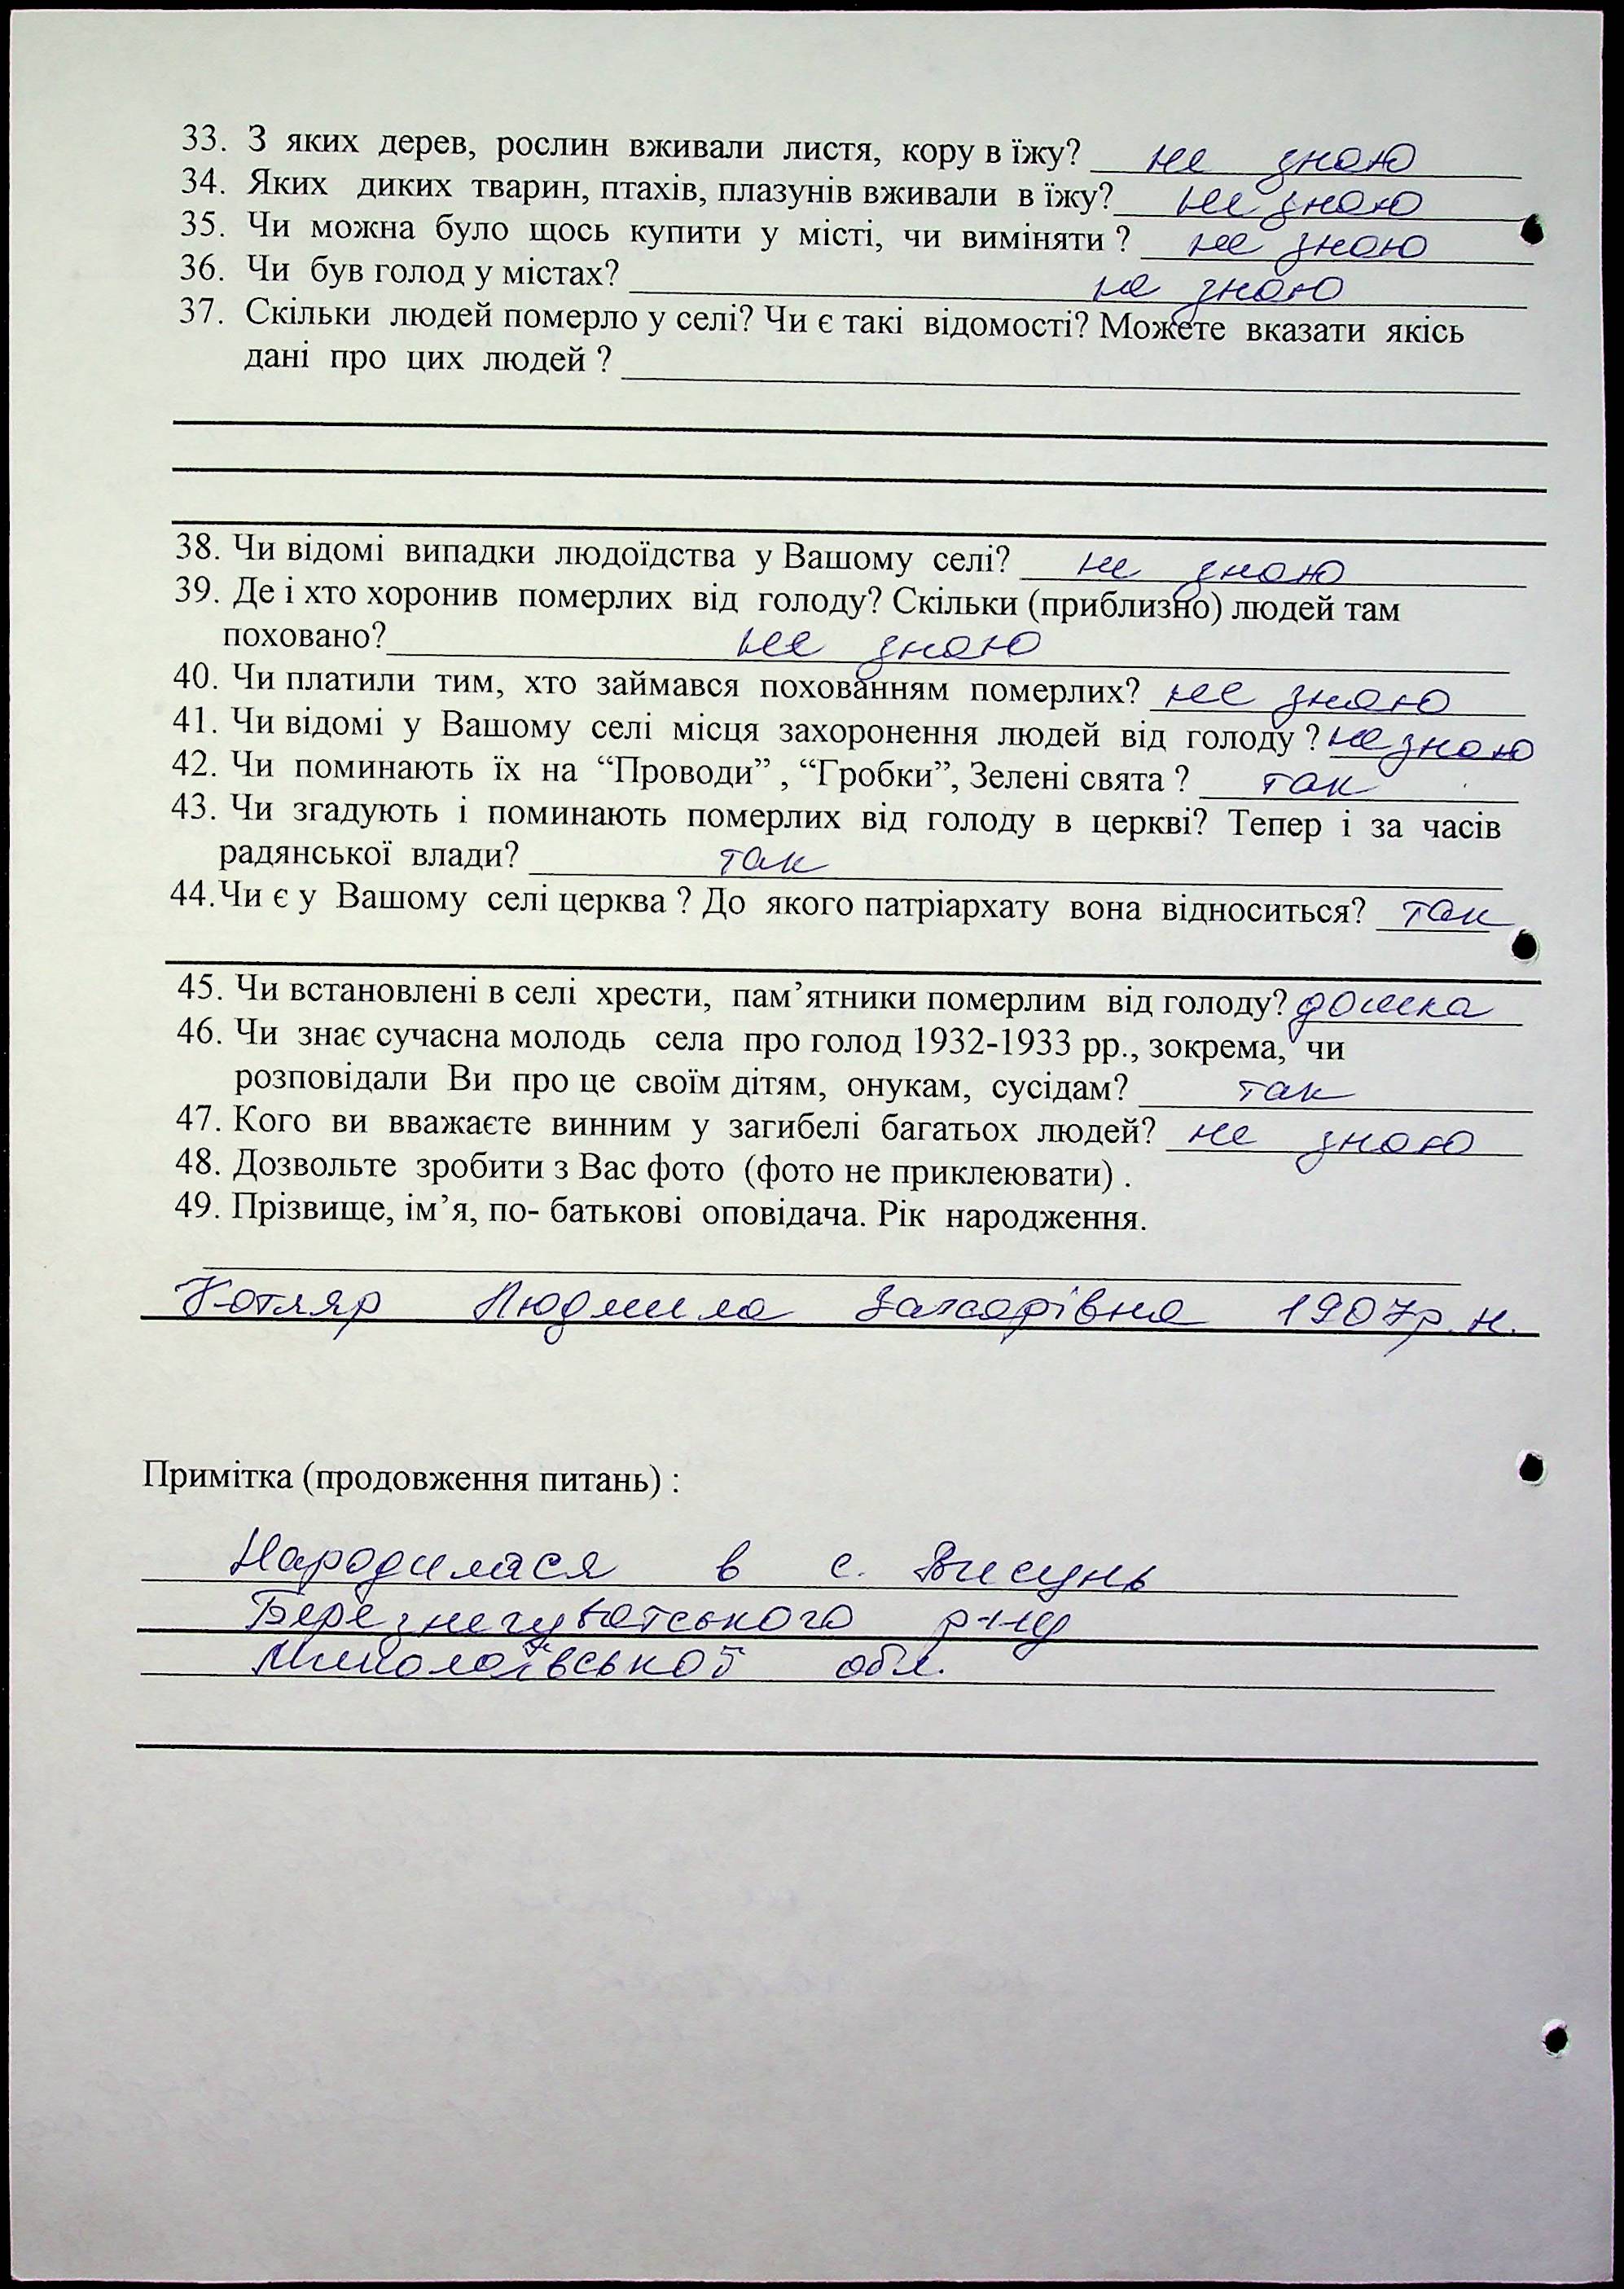 33. З яких дерев, рослин вживали листя, кору в їжу? не знаю
34. Яких диких тварин, птахів, плазунів вживали в їжу? не знаю
35. Чи можна було щось купити у місті, чи виміняти ? не знаю
36. Чи був голод у містах? не знаю
37. Скільки людей померло у селі? Чи є такі відомості? Можете вказати якісь
дані про цих людей ?
38. Чи відомі випадки людоїдства у Вашому селі? не знаю
39. Де і хто хоронив померлих від голоду? Скільки (приблизно) людей там
поховано? не знаю
40. Чи платили тим, хто займався похованням померлих? не знаю
41. Чи відомі у Вашому селі місця захоронення людей від голоду ? не знаю
42. Чи поминають їх на “Проводи” , “Гробки”, Зелені свята ? так
43. Чи згадують і поминають померлих від голоду в церкві? Тепер і за часів
радянської влади? так
44.Чи є у Вашому селі церква ? До якого патріархату вона відноситься? так
45. Чи встановлені в селі хрести, пам’ятники померлим від голоду? дошка
46. Чи знає сучасна молодь села про голод 1932-1933 рр., зокрема, чи
розповідали Ви про це своїм дітям, онукам, сусідам? так
47. Кого ви вважаєте винним у загибелі багатьох людей? не знаю
48. Дозвольте зробити з Вас фото (фото не приклеювати) .
49. Прізвище, ім’я, по- батькові оповідача. Рік народження.
Котляр Людмила Захарівна 1907р.н.
Примітка (продовження питань) :
Народилася в с. Висунь
Березнегуватського р-ну
Миколаївської обл.